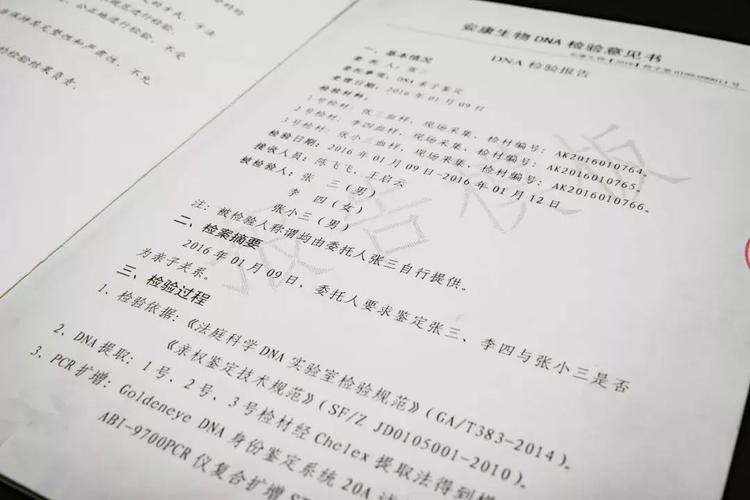 方式、方法
规范进行检验。
公正地进行检验，不受
保持其完整性和严肃性，不允
检验结果负责。
安康生物DNA检验意见书
DNA检验报告
一、基本情况
委托人：张三
委托事项：DNA亲子鉴定
受理日期：2016年01月09日
检验材料：
1号检材：张三血样，现场采集，检材编号：AK2016010764。
2号检材：李四血样，现场采集，检材编号：AK2016010765。
3号检材：张小三血样，现场采集，检材编号：AK2016010766。
检验日期：2016年01月09日-2016年01月12日
接收人员：陈飞飞、王启云
被检验人：张 三（男）
李 四（女）
张小三（男）
注：被检验人称谓均由委托人张三自行提供。
二、检案摘要
2016年01月09日，委托人要求鉴定张三、李四与张小三是否
为亲子关系。
三、检验过程
1、检验依据：《法庭科学DNA实验室检验规范》（GA/T383-2014）。
《亲权鉴定技术规范》（SF/Z JD0105001-2010）。
2、DNA提取：1号、2号、3号检材经Chelex提取法得到模
3、PCR扩增：Goldeneye DNA身份鉴定系统20A
ABI-9700PCR仪复合扩增
报告模版